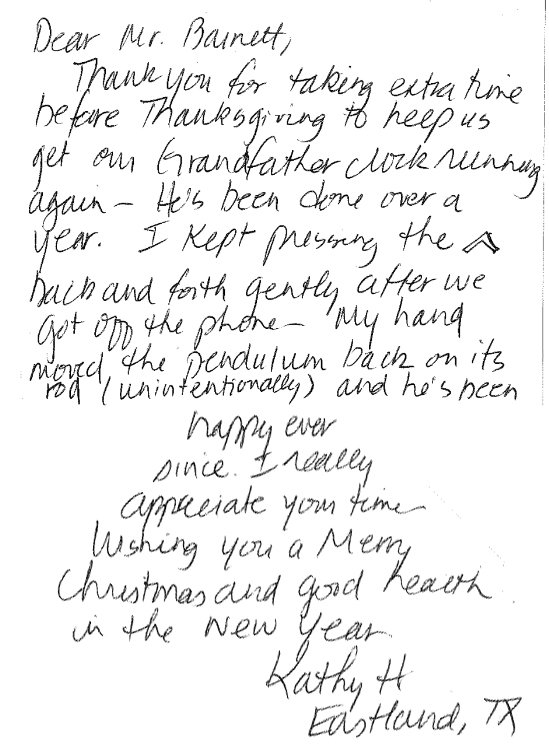 Dear Mr. Barnett,
Thank you for taking extra time
before Thanksgiving to help us
get our Grandfather clock running
again – He's been done over a
year. I kept pressing the
back and forth gently after we
got off the phone – My hand
moved the pendulum back on its
rod (unintentionally) and he's been
happy ever
since. I really
appreciate your time
Wishing you a Merry
Christmas and good health
in the New Year
Kathy H
Eastland, TX